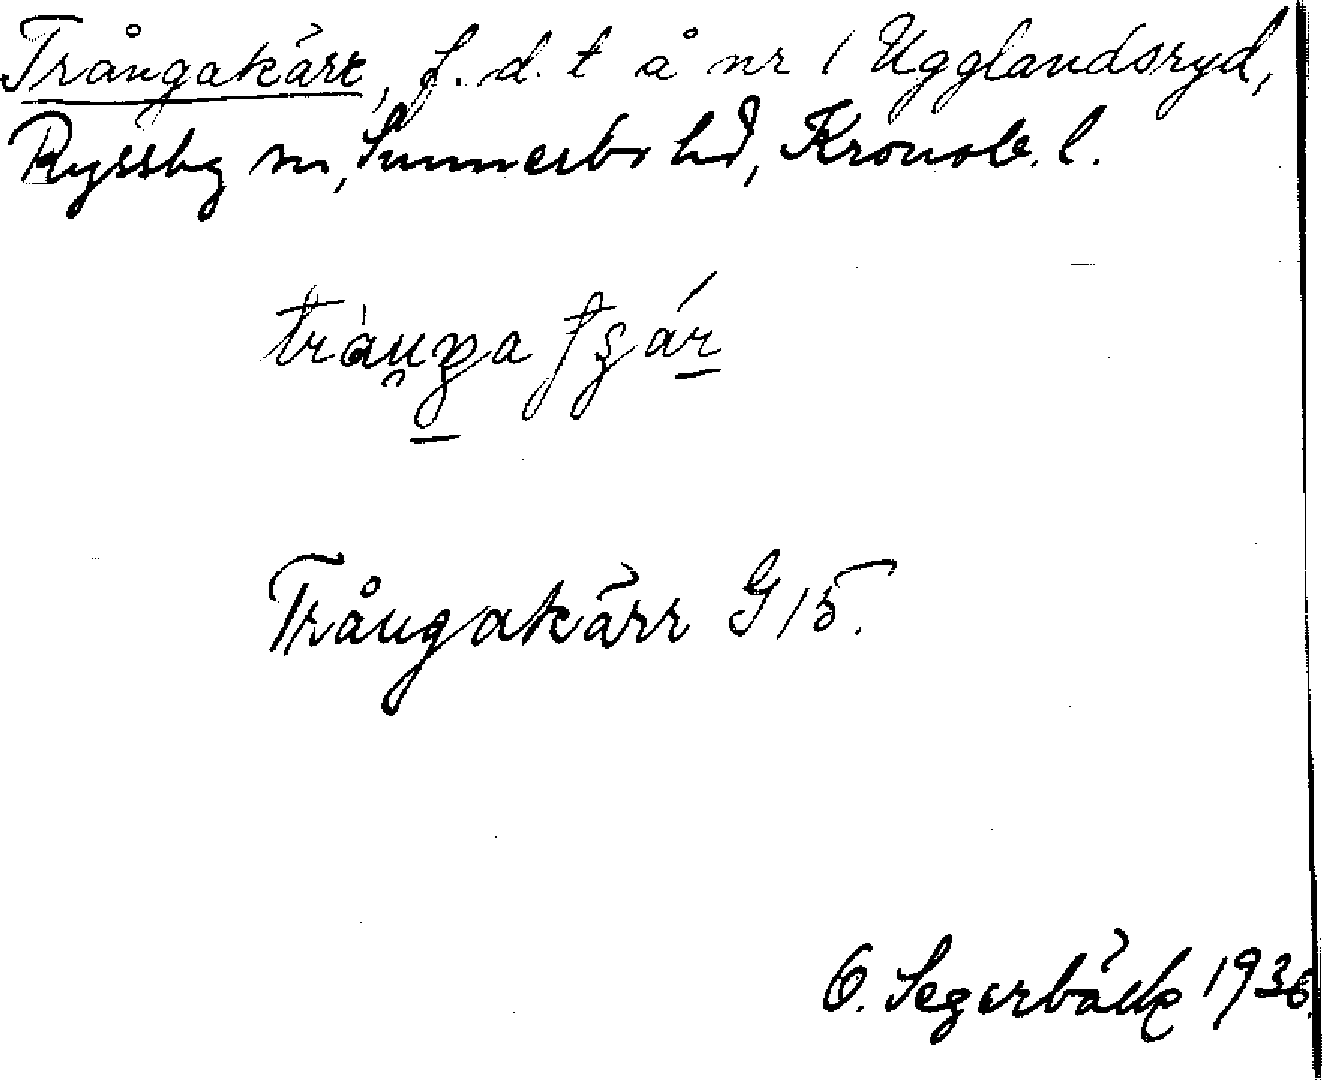 Trångakärr, f. d. t å nr 1 Ugglandsryd,
Ryssby sn, Sunnerbo hd, Kronob. l.
Trångakärr G 15.
O. Segerbäck 1936.